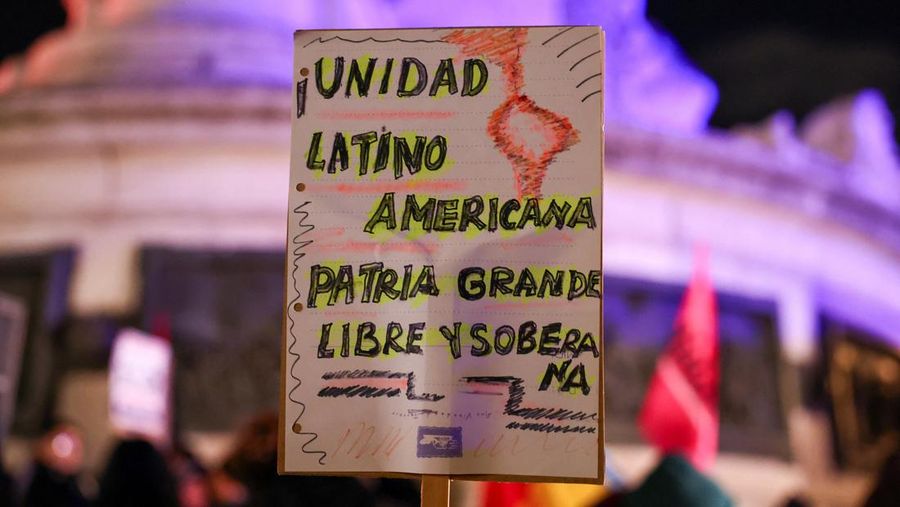 ¡UNIDAD
LATINO
AMERICANA
PATRIA GRANDE
LIBRE Y SOBERA
NA